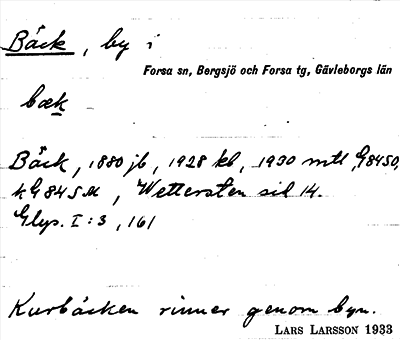 Bäck, by i
Forsa sn, Bergsjö och Forsa tg, Gävleborgs län
bæk
Bäck, 1880 jb, 1928 kb, 1930 mtl, G8450,
kG845M, Wettersten sid 14.
Glys. I:3, 161
Kurbäcken rinner genom byn.
LARS LARSSON 1933